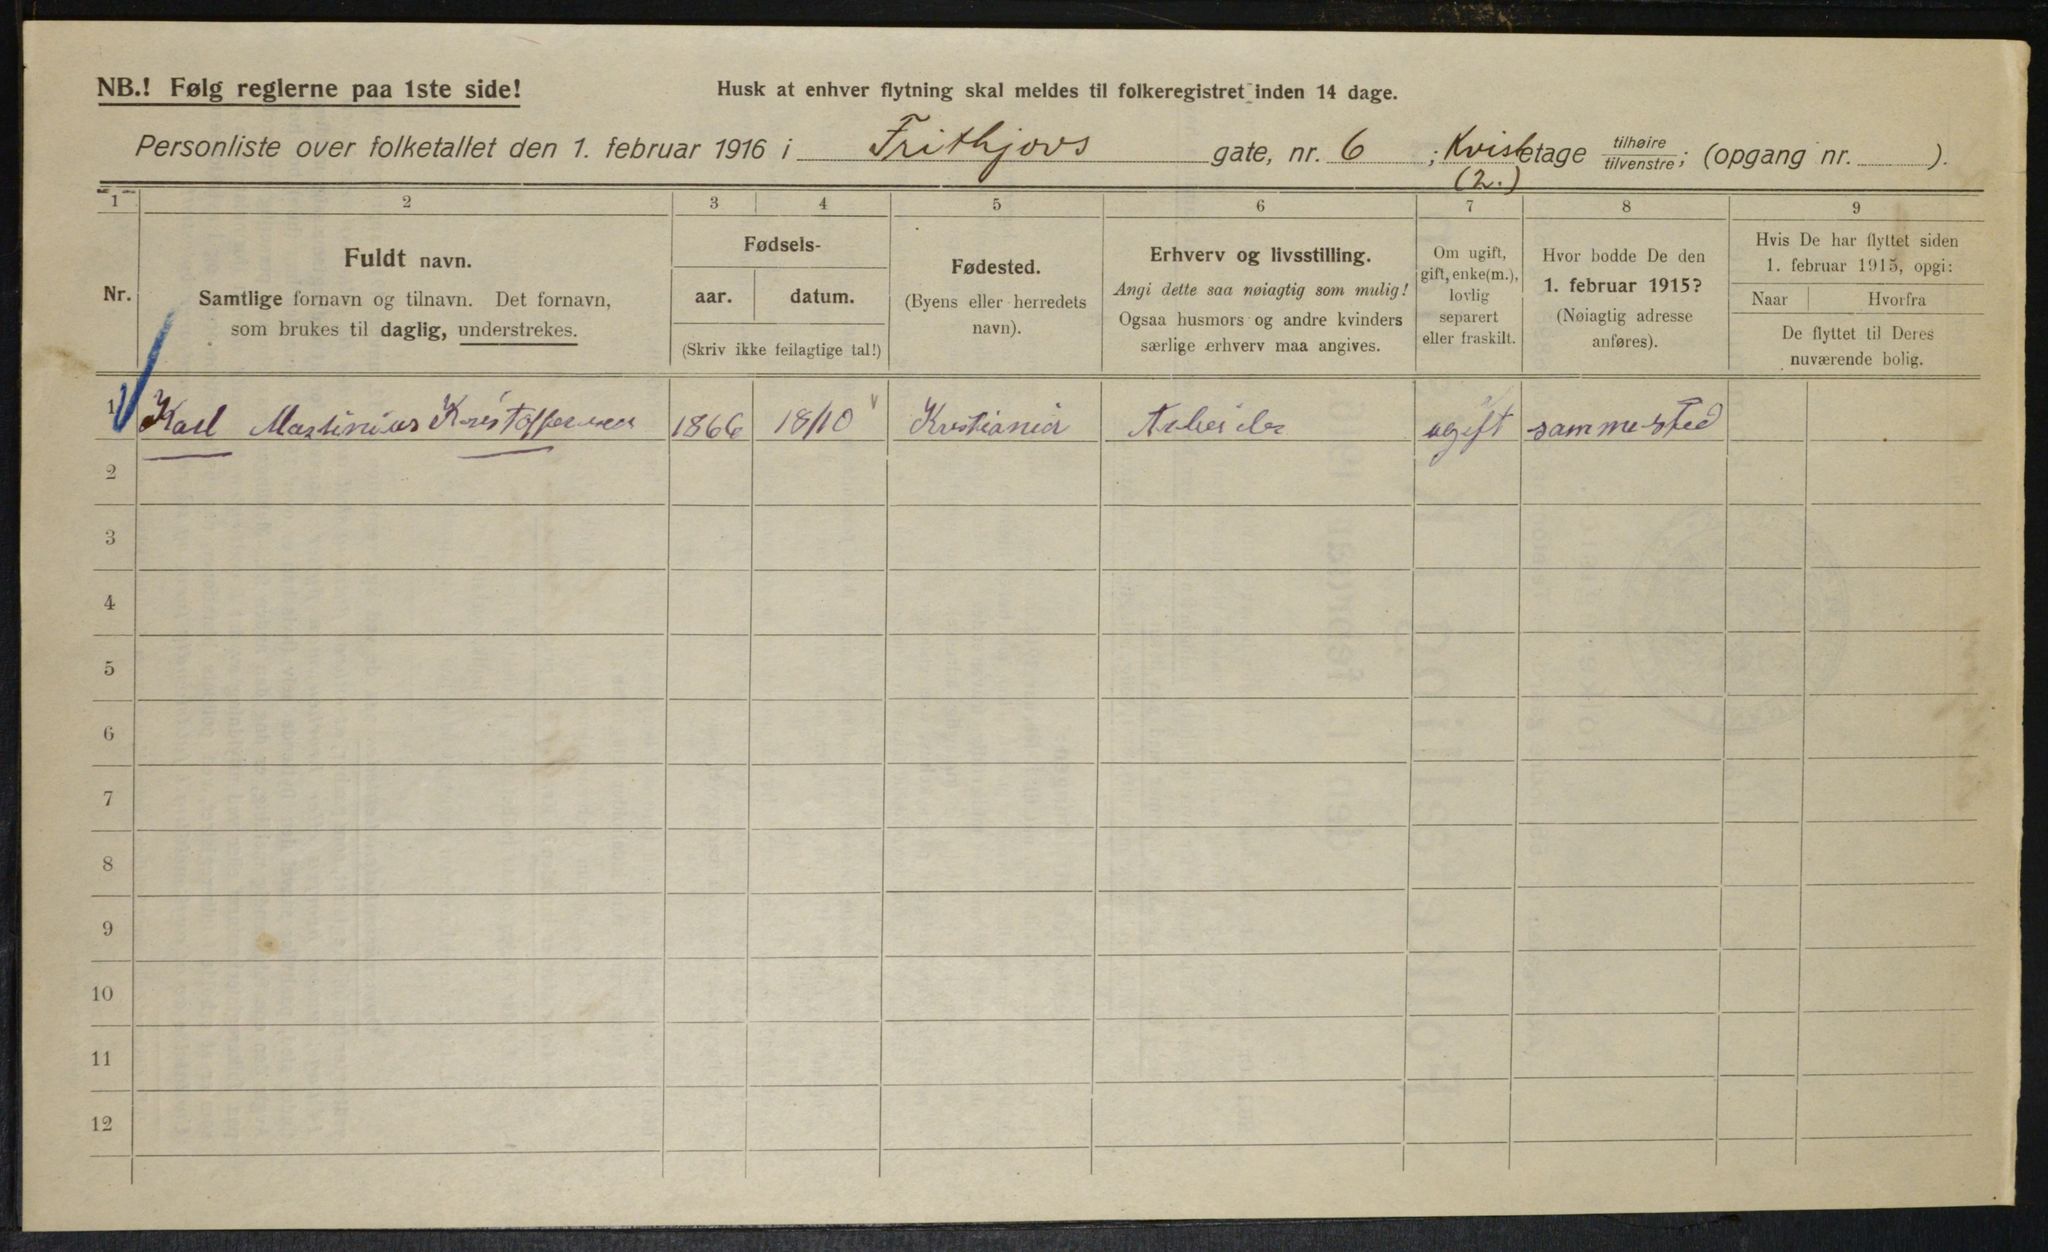 NB.! Følg reglerne paa 1ste side!
Husk at enhver flytning skal meldes til folkeregistret inden 14 dage.
Personliste over folketallet den 1. februar 1916 i Frithjovs gate, nr. 6 ; Kvist etage tilhøire tilvenstre; (opgang nr. ).
(2.)
1 2 3 4 5 6 7 8 9
Nr.
Fuldt navn.
Samtlige fornavn og tilnavn. Det fornavn,
som brukes til daglig, understrekes.
Fødsels-
aar. datum.
(Skriv ikke feilagtige tal!)
Fødested.
(Byens eller herredets
navn).
Erhverv og livsstilling.
Angi dette saa nøiagtig som mulig!
Ogsaa husmors og andre kvinders
særlige erhverv maa angives.
Om ugift,
gift, enke(m.),
lovlig
separert
eller fraskilt.
Hvor bodde De den
1. februar 1915?
(Nøiagtig adresse
anføres).
Hvis De har flyttet siden
1. februar 1915, opgi:
Naar Hvorfra
De flyttet til Deres
nuværende bolig.
1 Karl Martinius Kristoffersen 1866 18/10 Kristiania Arbeider ugift sammested
2
3
4
5
6
7
8
9
10
11
12